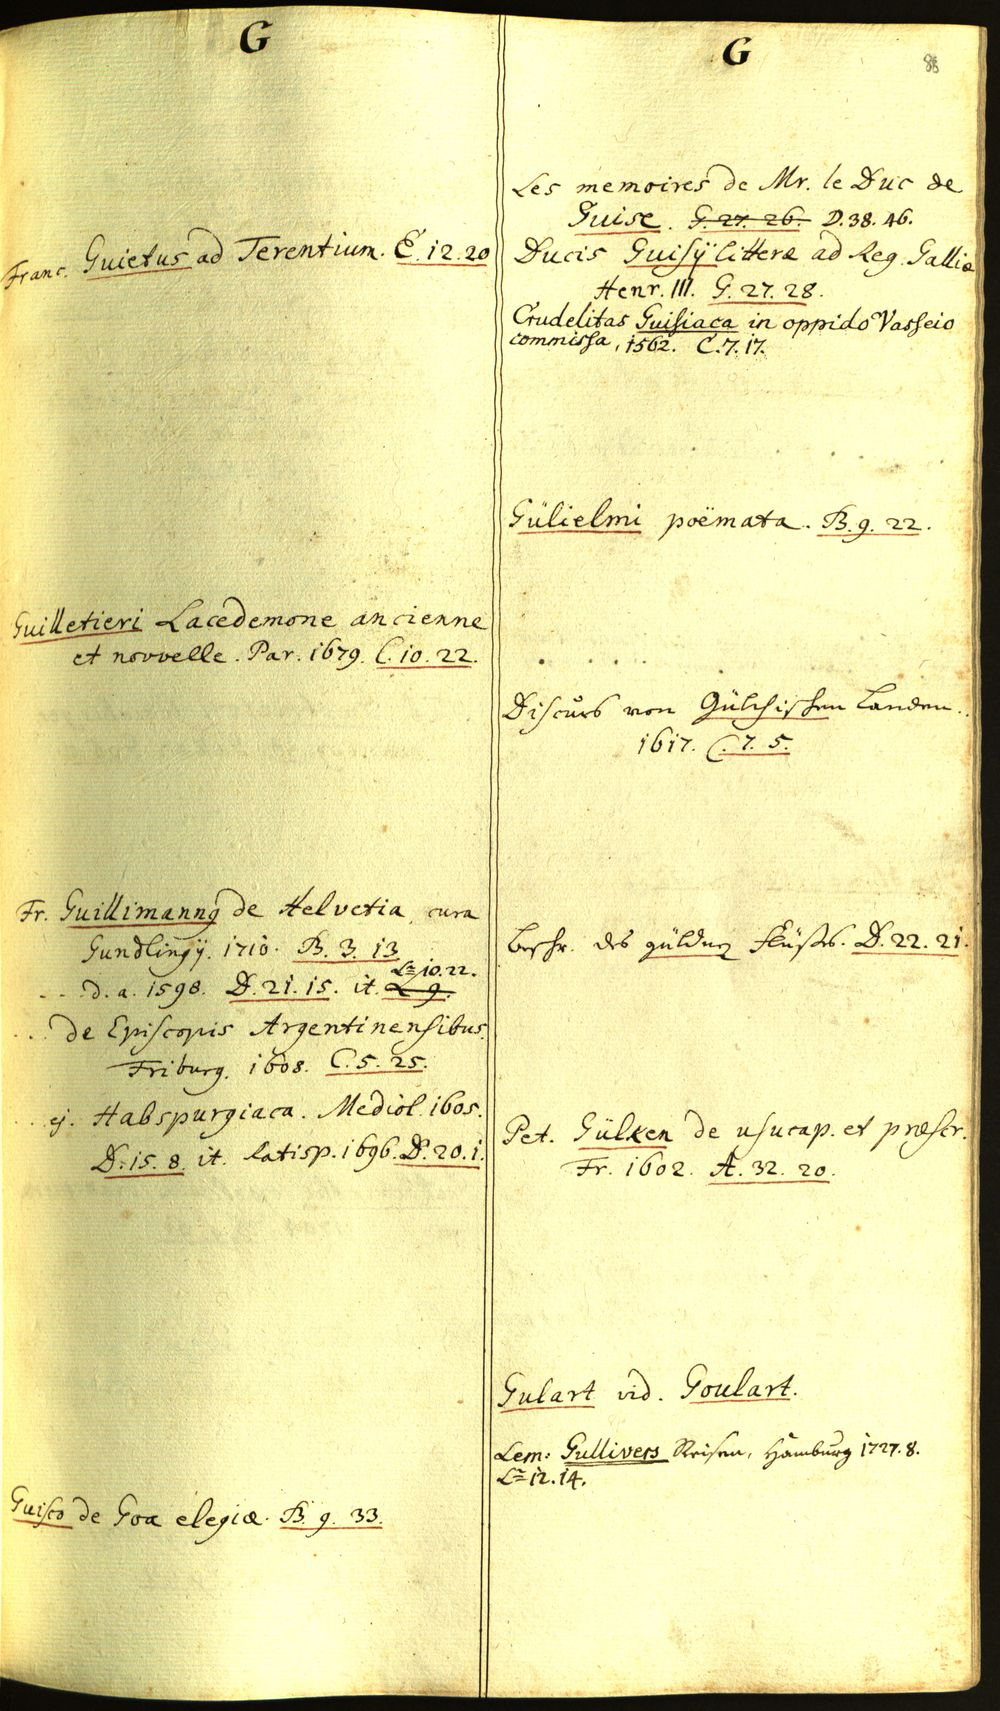 G
Franc. Guietus ad Terentium. E. 12. 20
Guilletieri Lacedemone ancienne
et novvelle. Par. 1679. C. 10. 22.
Fr. Guillimanng de Helvetia, cura
Gundlingÿ. 1710. B. 3. 13
La 10. 22.
... d. a. 1598. D. 21. 15. it. L 9.
... de Episcopis Argentinensibus.
Friburg. 1608. C. 5. 25.
... ej. Habspurgiaca. Mediol. 1605.
D. 15. 8. it. Ratisp. 1696. D. 20. 1.
Guisco de Goa elegiæ. B. 9. 33.
G
Les memoires de Mr. le Duc de
Guise. G. 27. 26. D. 38. 46.
Ducis Guisÿ litteræ ad Reg. Galliæ
Henr. III. G. 27. 28.
Crudelitas Guisiaca in oppido Vasseio
commissa, 1562. C. 7. 17.
Gülielmi poëmata. B. 9. 22.
Discurs von Gülchischen Landen.
1617. C. 7. 5.
Beschr. des güldnen Flüsses. D. 22. 21.
Pet. Gülken de usucap. et præscr.
Fr. 1602. A. 32. 20.
Gulart vid. Goulart.
Lem: Gullivers Reisen, Hamburg 1727. 8.
La 12. 14.